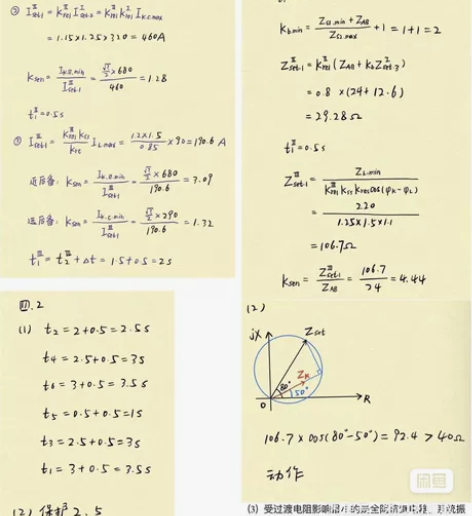 ② I^Ⅱset.1 = K^Ⅱrel I^Ⅰset.2 = K^Ⅱrel K^Ⅰrel Ik.c.max
= 1.15×1.25×320 = 460A
Ksen = Ik.B.min / I^Ⅱset.1 = (√3/2 × 680) / 460 = 1.28
t₁^Ⅱ = 0.5s
③ I^Ⅲset.1 = (K^Ⅲrel Kss / Kre) IL.max = (1.2×1.5 / 0.85) × 90 = 190.6 A
近后备: Ksen = Ik.B.min / I^Ⅲset.1 = (√3/2 × 680) / 190.6 = 3.09
远后备: Ksen = Ik.c.min / I^Ⅲset.1 = (√3/2 × 290) / 190.6 = 1.32
t₁^Ⅲ = t₂^Ⅲ + Δt = 1.5+0.5 = 2s
kb.min = (ZG1.min + ZAB) / ZG2.max + 1 = 1+1 = 2
Z^Ⅱset.1 = K^Ⅱrel (ZAB + kb Z^Ⅰset.3)
= 0.8 × (24+12.6)
= 29.28Ω
t₁^Ⅱ = 0.5s
Z^Ⅲset.1 = ZL.min / (K^Ⅲrel Kss Kre cos(φk-φL)
= 220 / (1.25×1.5×1.1)
= 106.7Ω
Ksen = Z^Ⅲset.1 / ZAB = 106.7 / 24 = 4.44
四.2
(1) t₂ = 2+0.5 = 2.5s
t₄ = 2.5+0.5 = 3s
t₆ = 3+0.5 = 3.5s
t₅ = 0.5+0.5 = 1s
t₃ = 2.5+0.5 = 3s
t₁ = 3+0.5 = 3.5s
(2) 保护 2.5
(2)
jX
Zset
Zk
80°
50°
0
R
106.7 × cos(80°-50°) = 92.4 > 40Ω
动作
闲鱼
(3) 受过渡电阻影响最小的是全阻抗继电器,